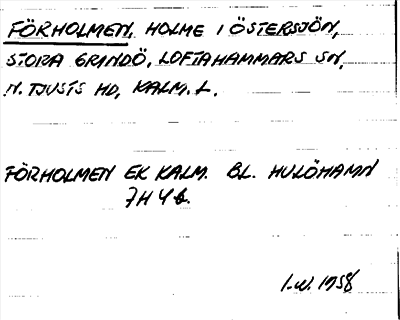 FÖRHOLMEN, HOLME I ÖSTERSJÖN,
STORA GRINDÖ, LOFTAHAMMARS SN,
N. TJUSTS HD, KALM. L.
FÖRHOLMEN EK KALM. BL. HULÖHAMN
7H 4b.
I.W. 1958